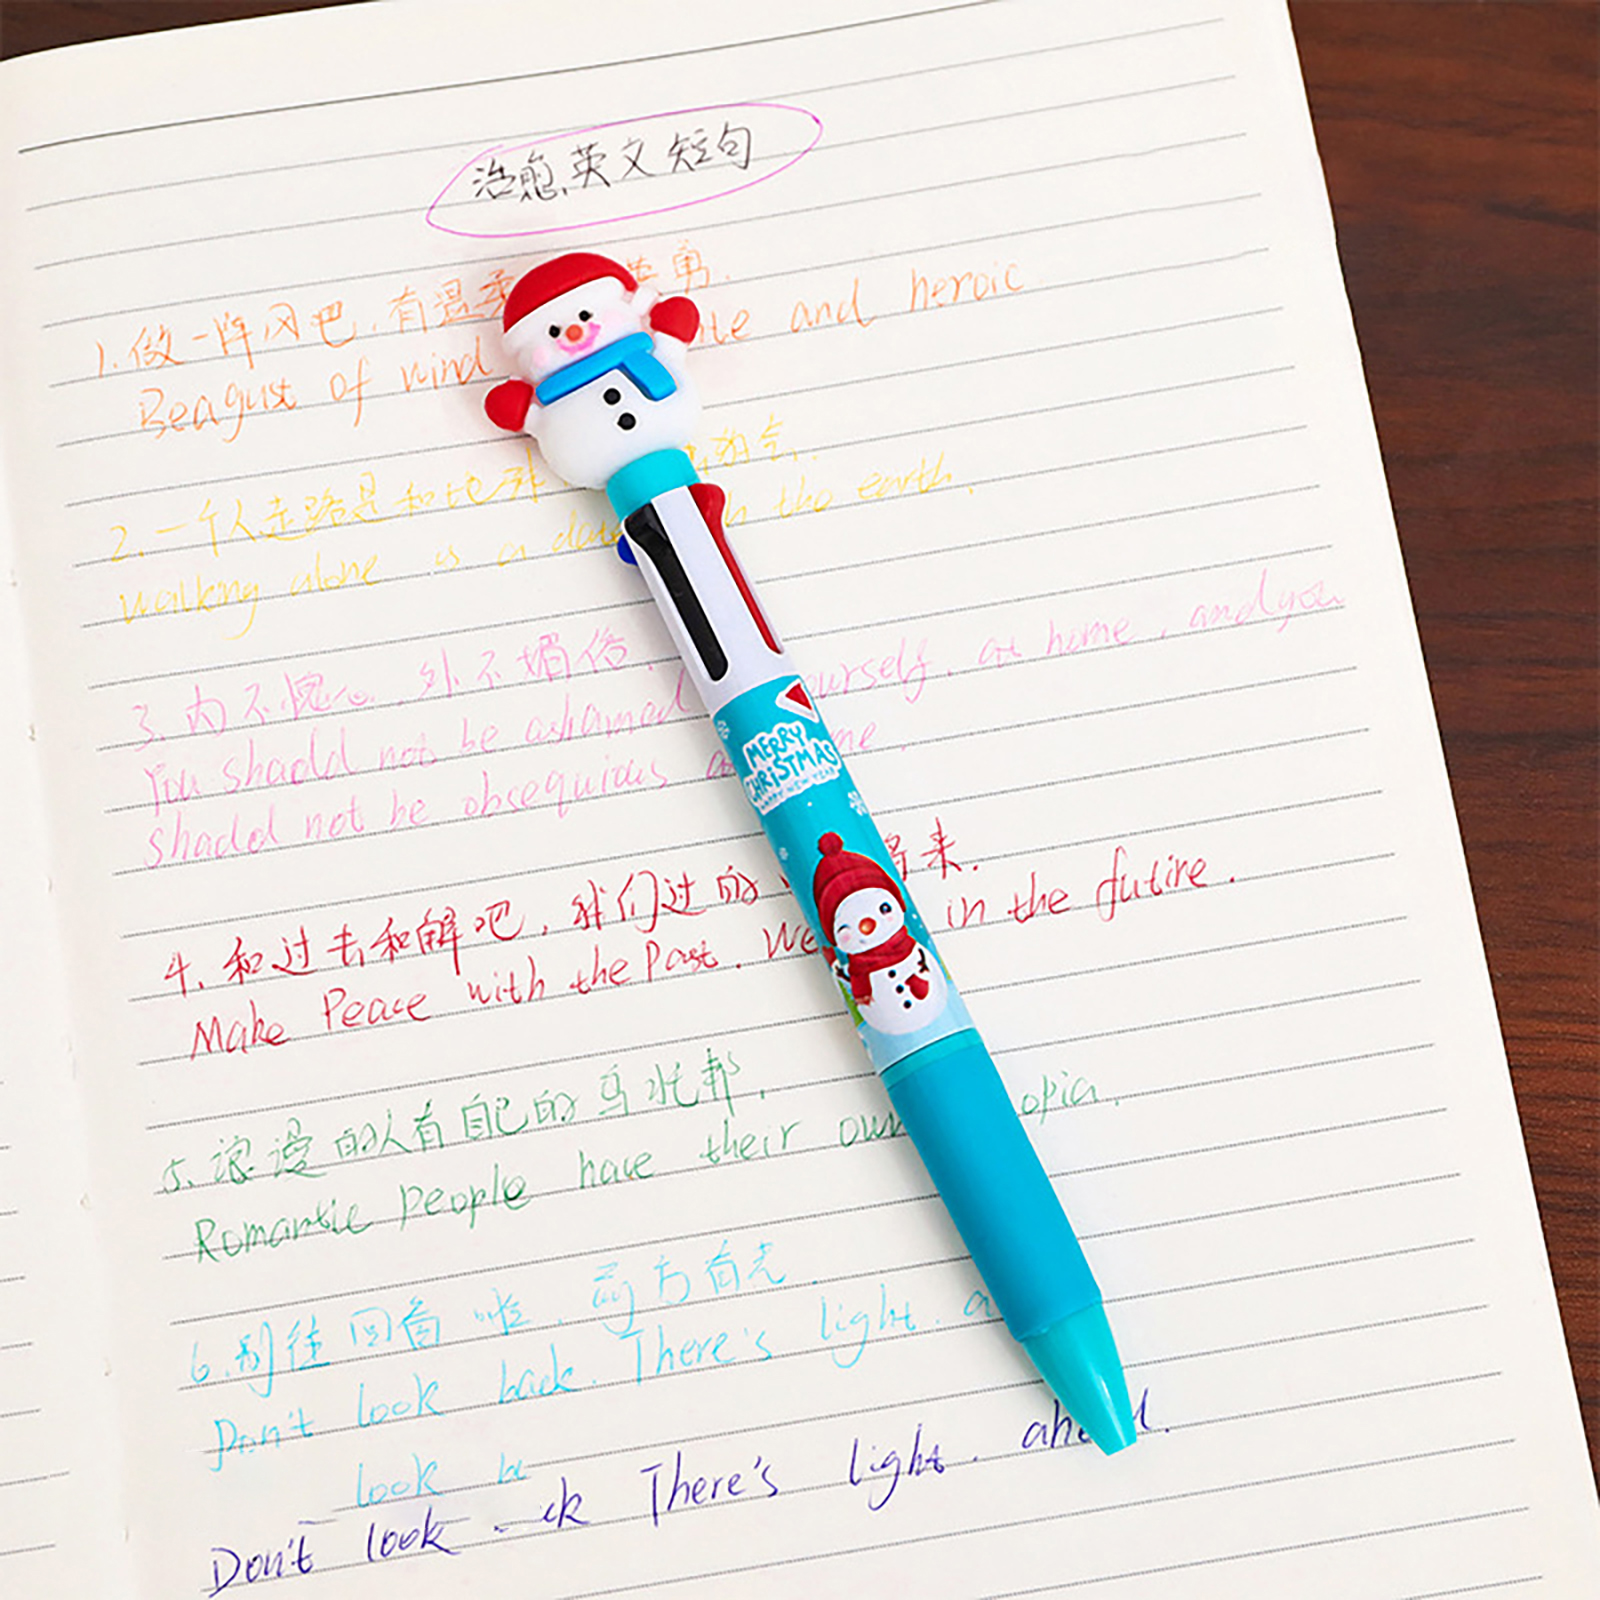 治愈英文短句
1.做一阵风吧,有温柔 英勇.
Be a gust of wind and heroic
2.一个人走路是和地球 约会.
walking alone is a date the earth.
3.内不愧心,外不媚俗.
You shadd not be ashamed yourself. at home, and you
shadd not be obsequious me.
4.和过去和解吧,我们过的 将来.
Make Peace with the Past. We in the futire.
5.浪漫的人有自己的乌托邦.
Romantic people have their own opia.
6.别往回看啦,前方有光.
Don't look back. There's light. a
look ba
Don't look ck There's light. ahead.
MERRY
CHRISTMAS
HAPPY NEW YEAR